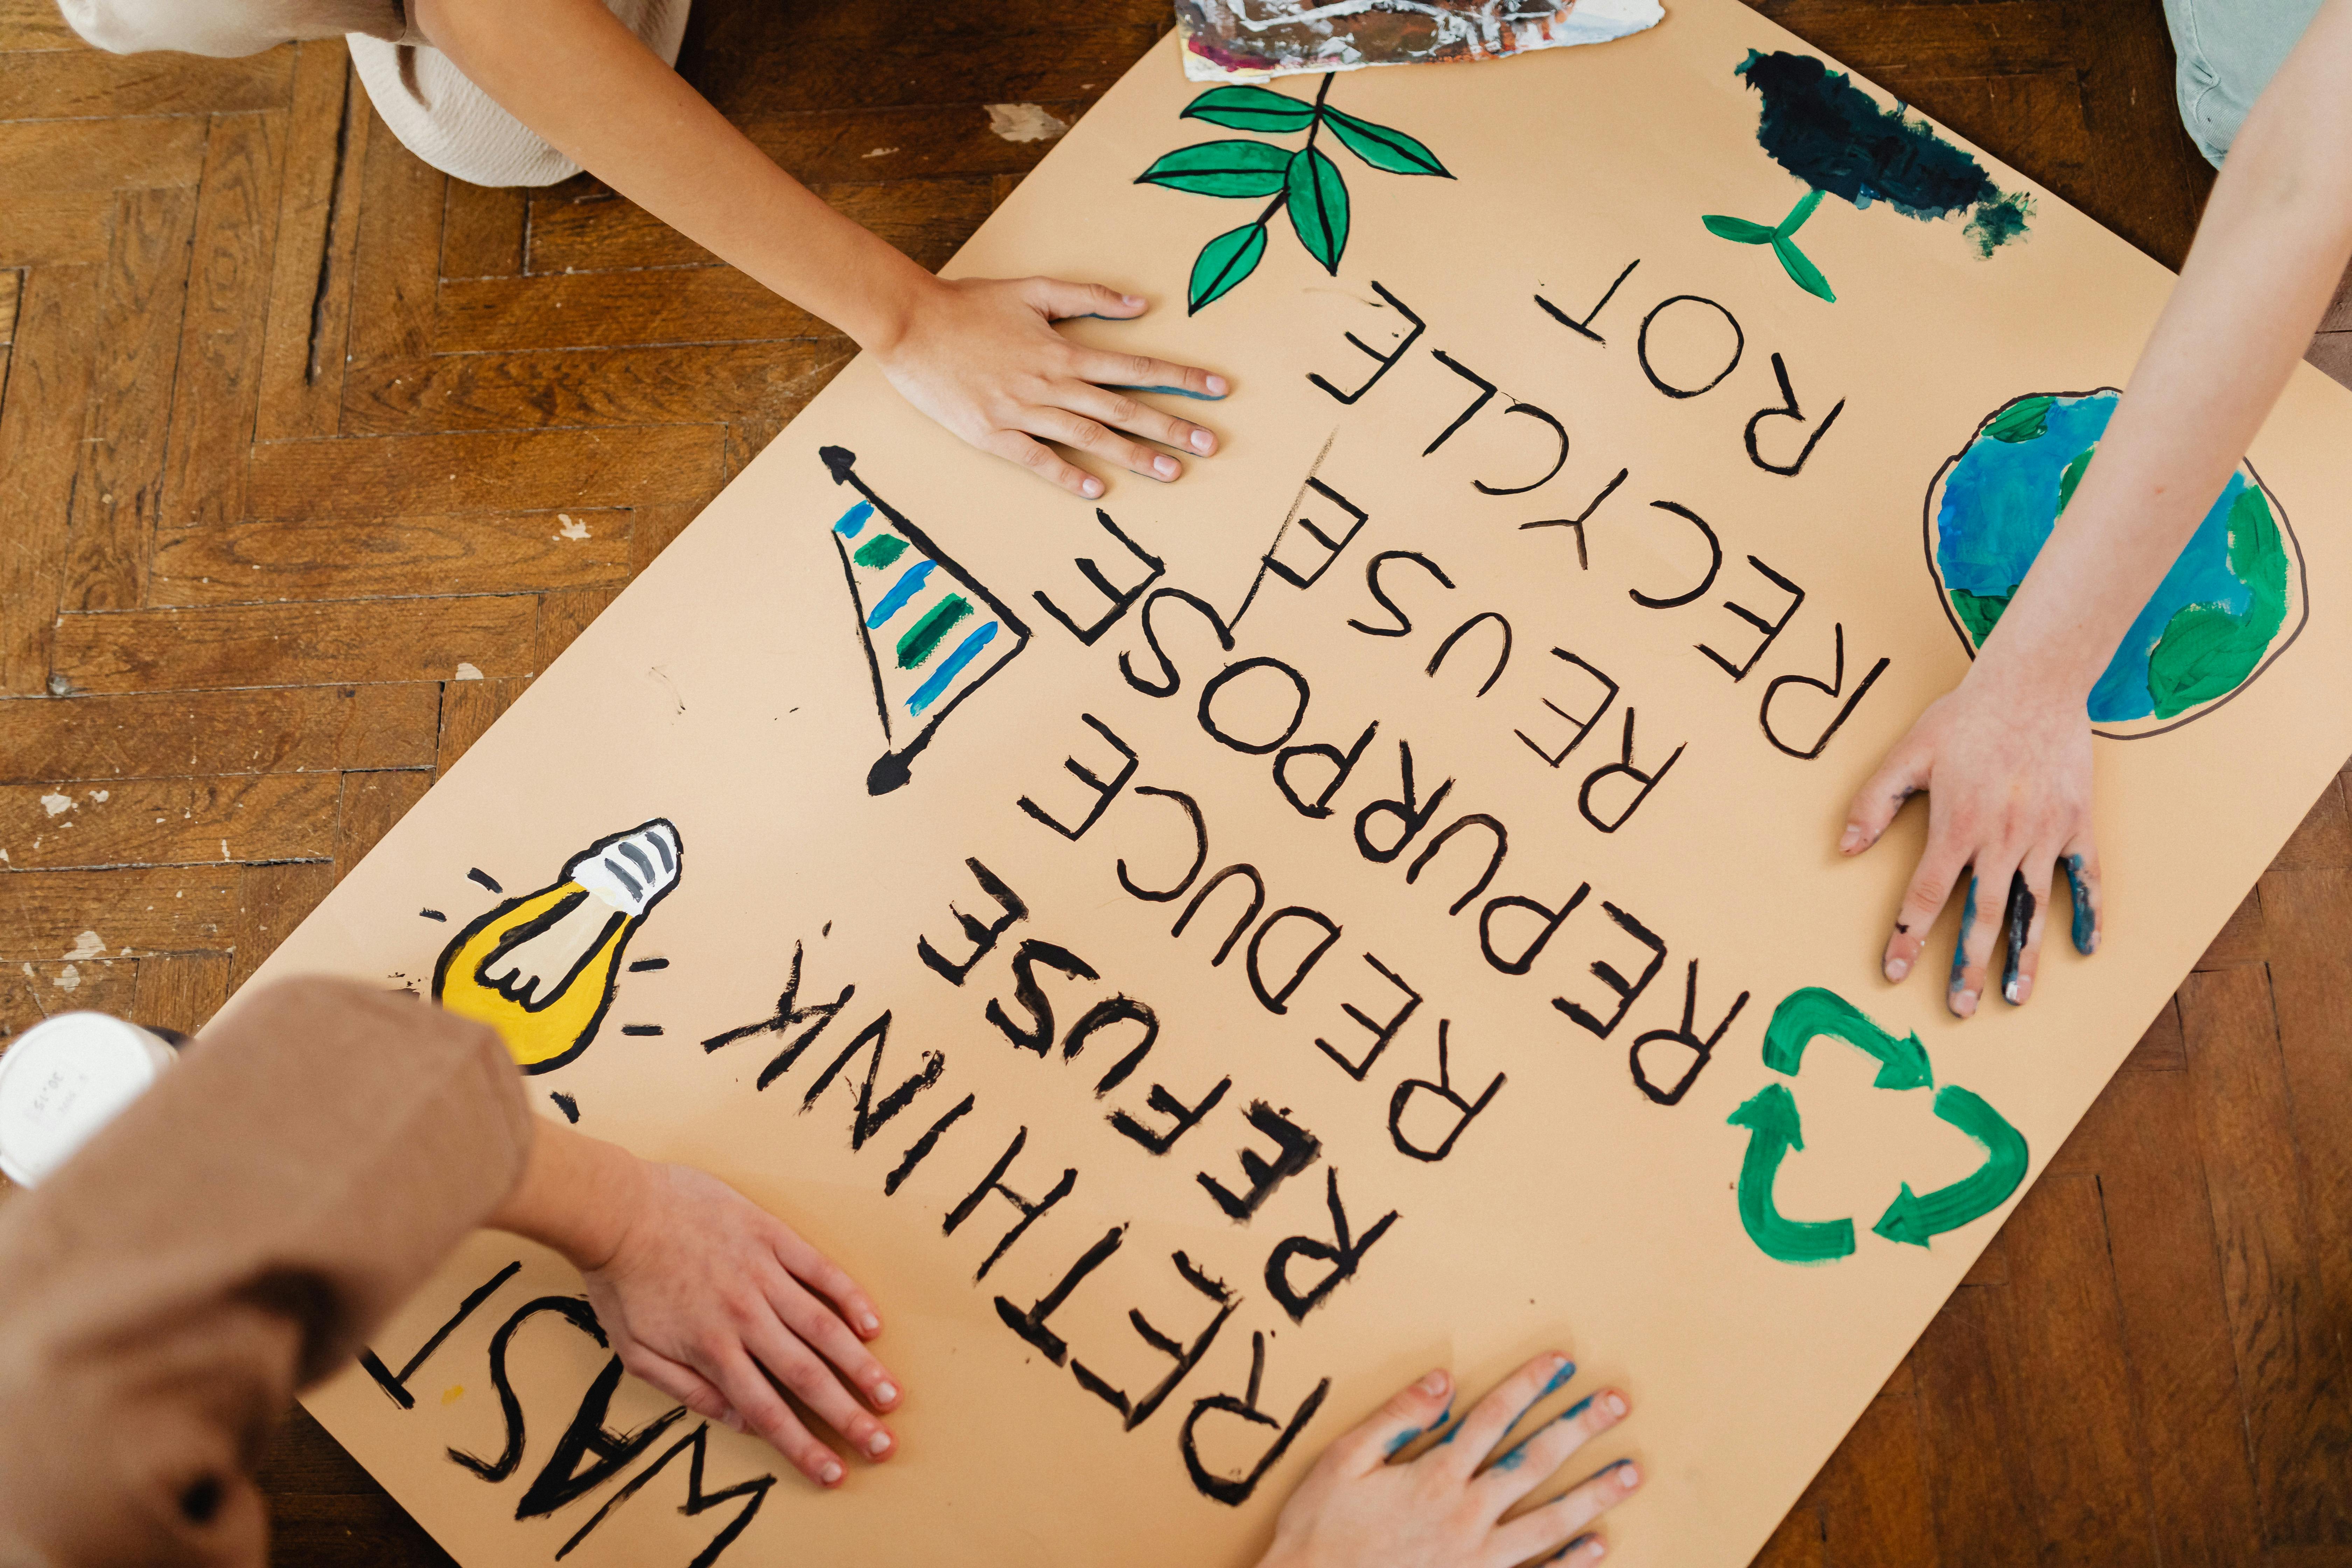 WAST
RETHINK
REFUSE
REDUCE
REPURPOSE
REUSE
RECYCLE
ROT